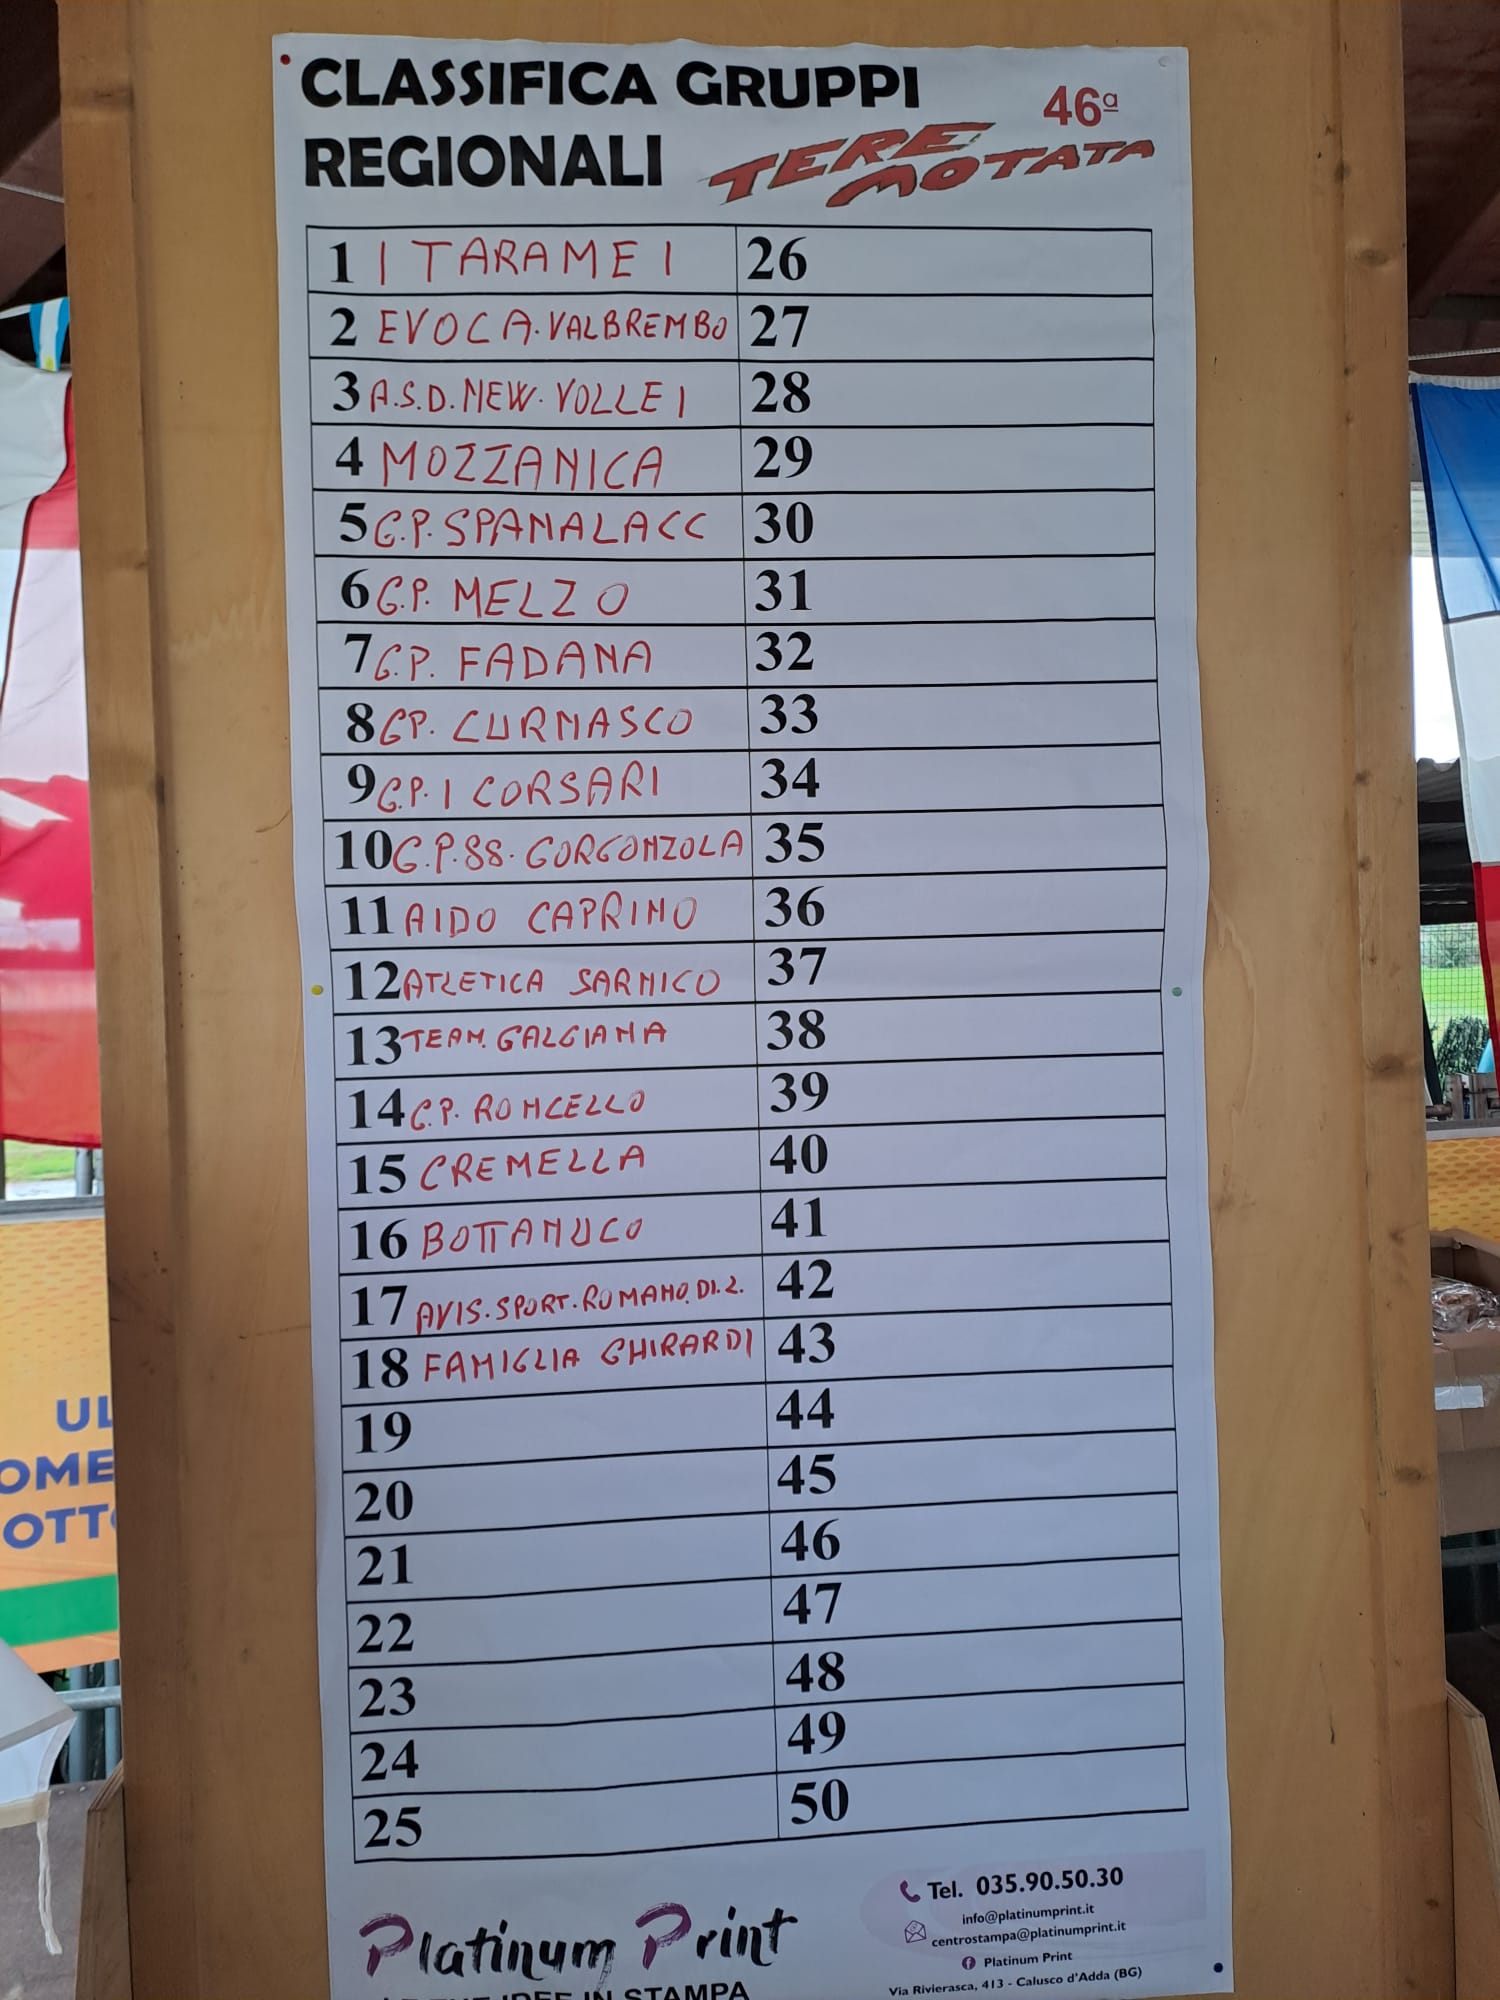 CLASSIFICA GRUPPI
REGIONALI
46ª
TEREMOTATA
1 I TARAMEI
2 EVOCA. VALBREMBO
3 A.S.D. NEW. VOLLEI
4 MOZZANICA
5 G.P. SPANALACC
6 G.P. MELZO
7 G.P. FADANA
8 GP. CURNASCO
9 G.P. I CORSARI
10 G.P. SS. GORGONZOLA
11 AIDO CAPRINO
12 ATLETICA SARNICO
13 TEAM. GALGIANA
14 G.P. RONCELLO
15 CREMELLA
16 BOTTANUCO
17 AVIS. SPORT. ROMANO. DI. L.
18 FAMIGLIA GHIRARDI
19
20
21
22
23
24
25
26
27
28
29
30
31
32
33
34
35
36
37
38
39
40
41
42
43
44
45
46
47
48
49
50
Platinum Print
IDEE IN STAMPA
Tel. 035.90.50.30
info@platinumprint.it
centrostampa@platinumprint.it
Platinum Print
Via Rivierasca, 413 - Calusco d'Adda (BG)
UL
OME
OTTO